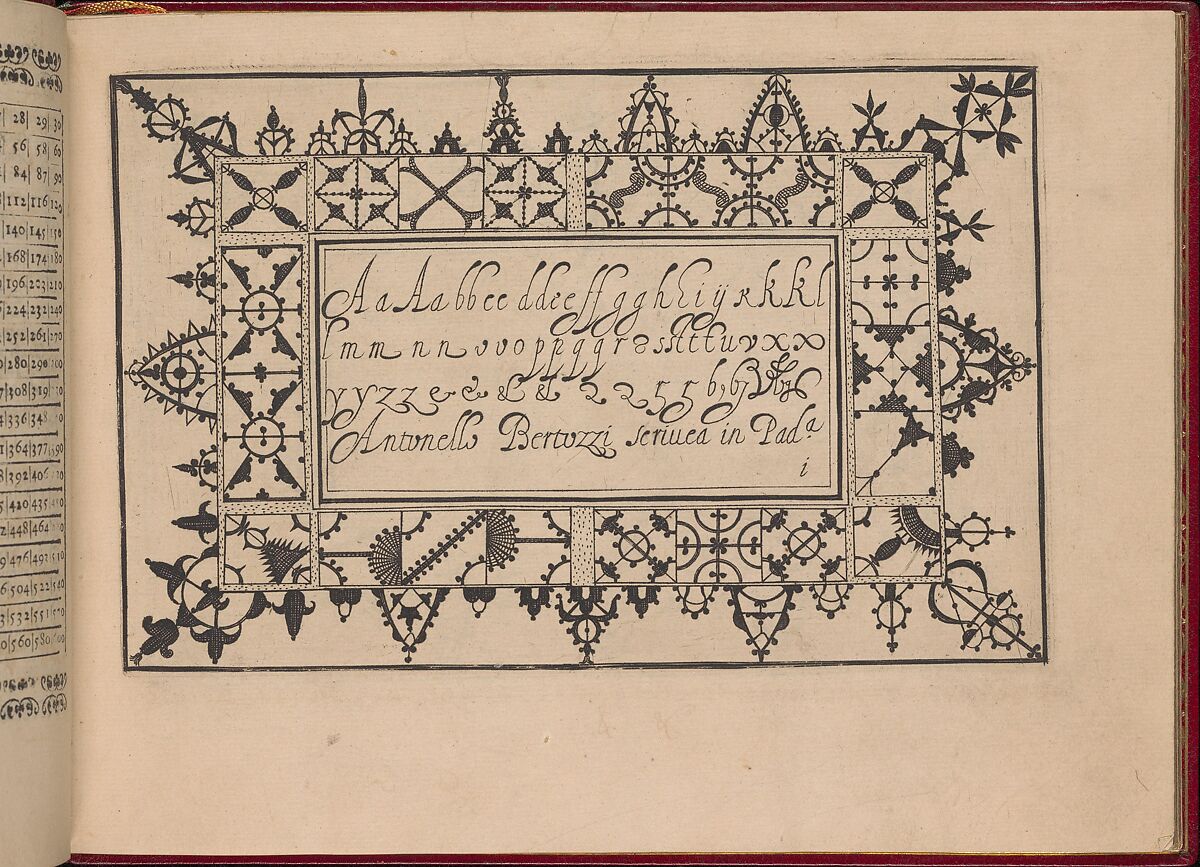 28 29 30
56 58 60
84 87 90
112 116 120
140 145 150
168 174 180
196 203 210
224 232 240
252 261 270
280 290
308 319
336 348
364 377 390
392 406
420 435
448 464
476 493 510
504 522 540
532 551
560 580 600
A a A a b b c c d d e e ff g g h h i ij k k k l
l m m n n o o o p p q q r s ss st t t u v x x
y y z z & & & & 2 2 5 5
Antonello Bertozzi scriuea in Pad.a
i